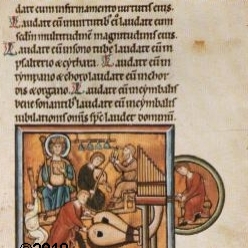 date eum in firmamento uirtutis eius.
Laudate eum in uirtutib; eius laudate eum
sedm multitudinem magnitudinis eius.
Laudate eum in sono tube laudate eum in
psalterio & cythara. Laudate eum in
tympano & choro laudate eum in chor
dis & organo. Laudate eum in cymbalis
bene sonantib; laudate eum in cymbalis
iubilationis omnis sps laudet dominum.